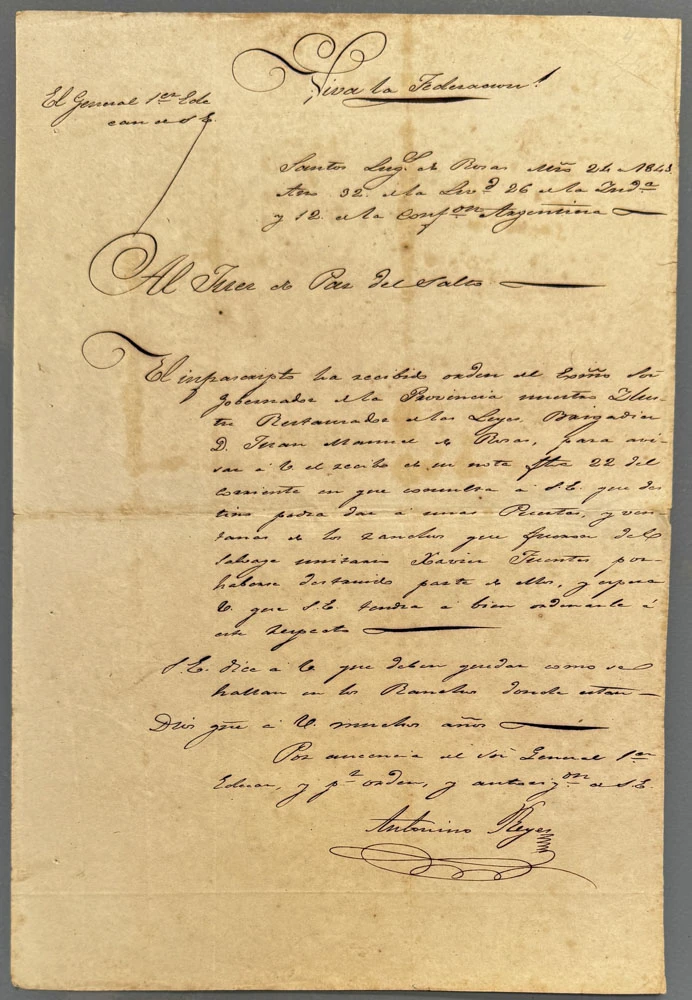 ¡Viva la Federacion!
El General 1er Ede
can de S.E.
Santos Lugs de Rosas 24 de 1841
Año 32 de la Livd 26 de la Inda
y 12 de la Confon Argentina
Al Juez de Paz del Salto
El infrascripto ha recibido orden del Exmo Sor
Gobernador de la Provincia nuestro Ilus-
tre Restaurador de las Leyes, Brigadier
D. Juan Manuel de Rosas, para avi-
sar á V el recibo de su nota fha 22 del
corriente en que consulta á S.E. que des
tino podra dar á unas Puertas, y ven-
tanas de los ranchos que fueron del
salvage unitario Xavier Fuentes por
haberse destruido parte de ellos, y espera
V que S.E. tendra á bien ordenarle á
este respecto
S.E. dice á V que deben quedar como se
hallan en los Ranchos donde estan
Dios gue á V muchos años
Por ausencia del Sor General 1er
Edecan, y pr orden, y autorizon de S.E.
Antonino Reyes